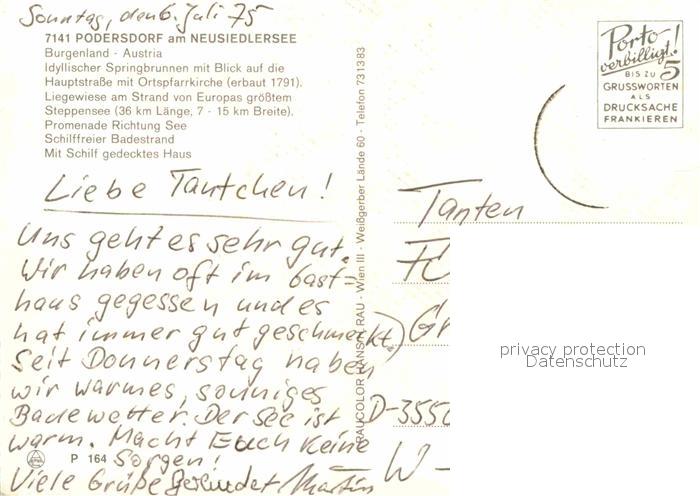 Sonntag, den 6. Juli 75
7141 PODERSDORF am NEUSIEDLERSEE
Burgenland - Austria
Idyllischer Springbrunnen mit Blick auf die
Hauptstraße mit Ortspfarrkirche (erbaut 1791).
Liegewiese am Strand von Europas größtem
Steppensee (36 km Länge, 7 - 15 km Breite).
Promenade Richtung See
Schilffreier Badestrand
Mit Schilf gedecktes Haus
Liebe Tantchen!
Uns geht es sehr gut.
Wir haben oft im Gast-
haus gegessen und es
hat immer gut geschmeckt.
Seit Donnerstag haben
wir warmes, sonniges
Badewetter. Der See ist
warm. Macht Euch keine
Sorgen!
Viele Grüße Gerlindet Martin
P 164
RAUCOLOR RAU - Wien III - Weißgerber Lände 60 - Telefon 731383
Porto
verbilligt!
BIS ZU 5
GRUSSWORTEN
ALS
DRUCKSACHE
FRANKIEREN
Tanten
F
Gr
D-3550
W-
privacy protection
Datenschutz